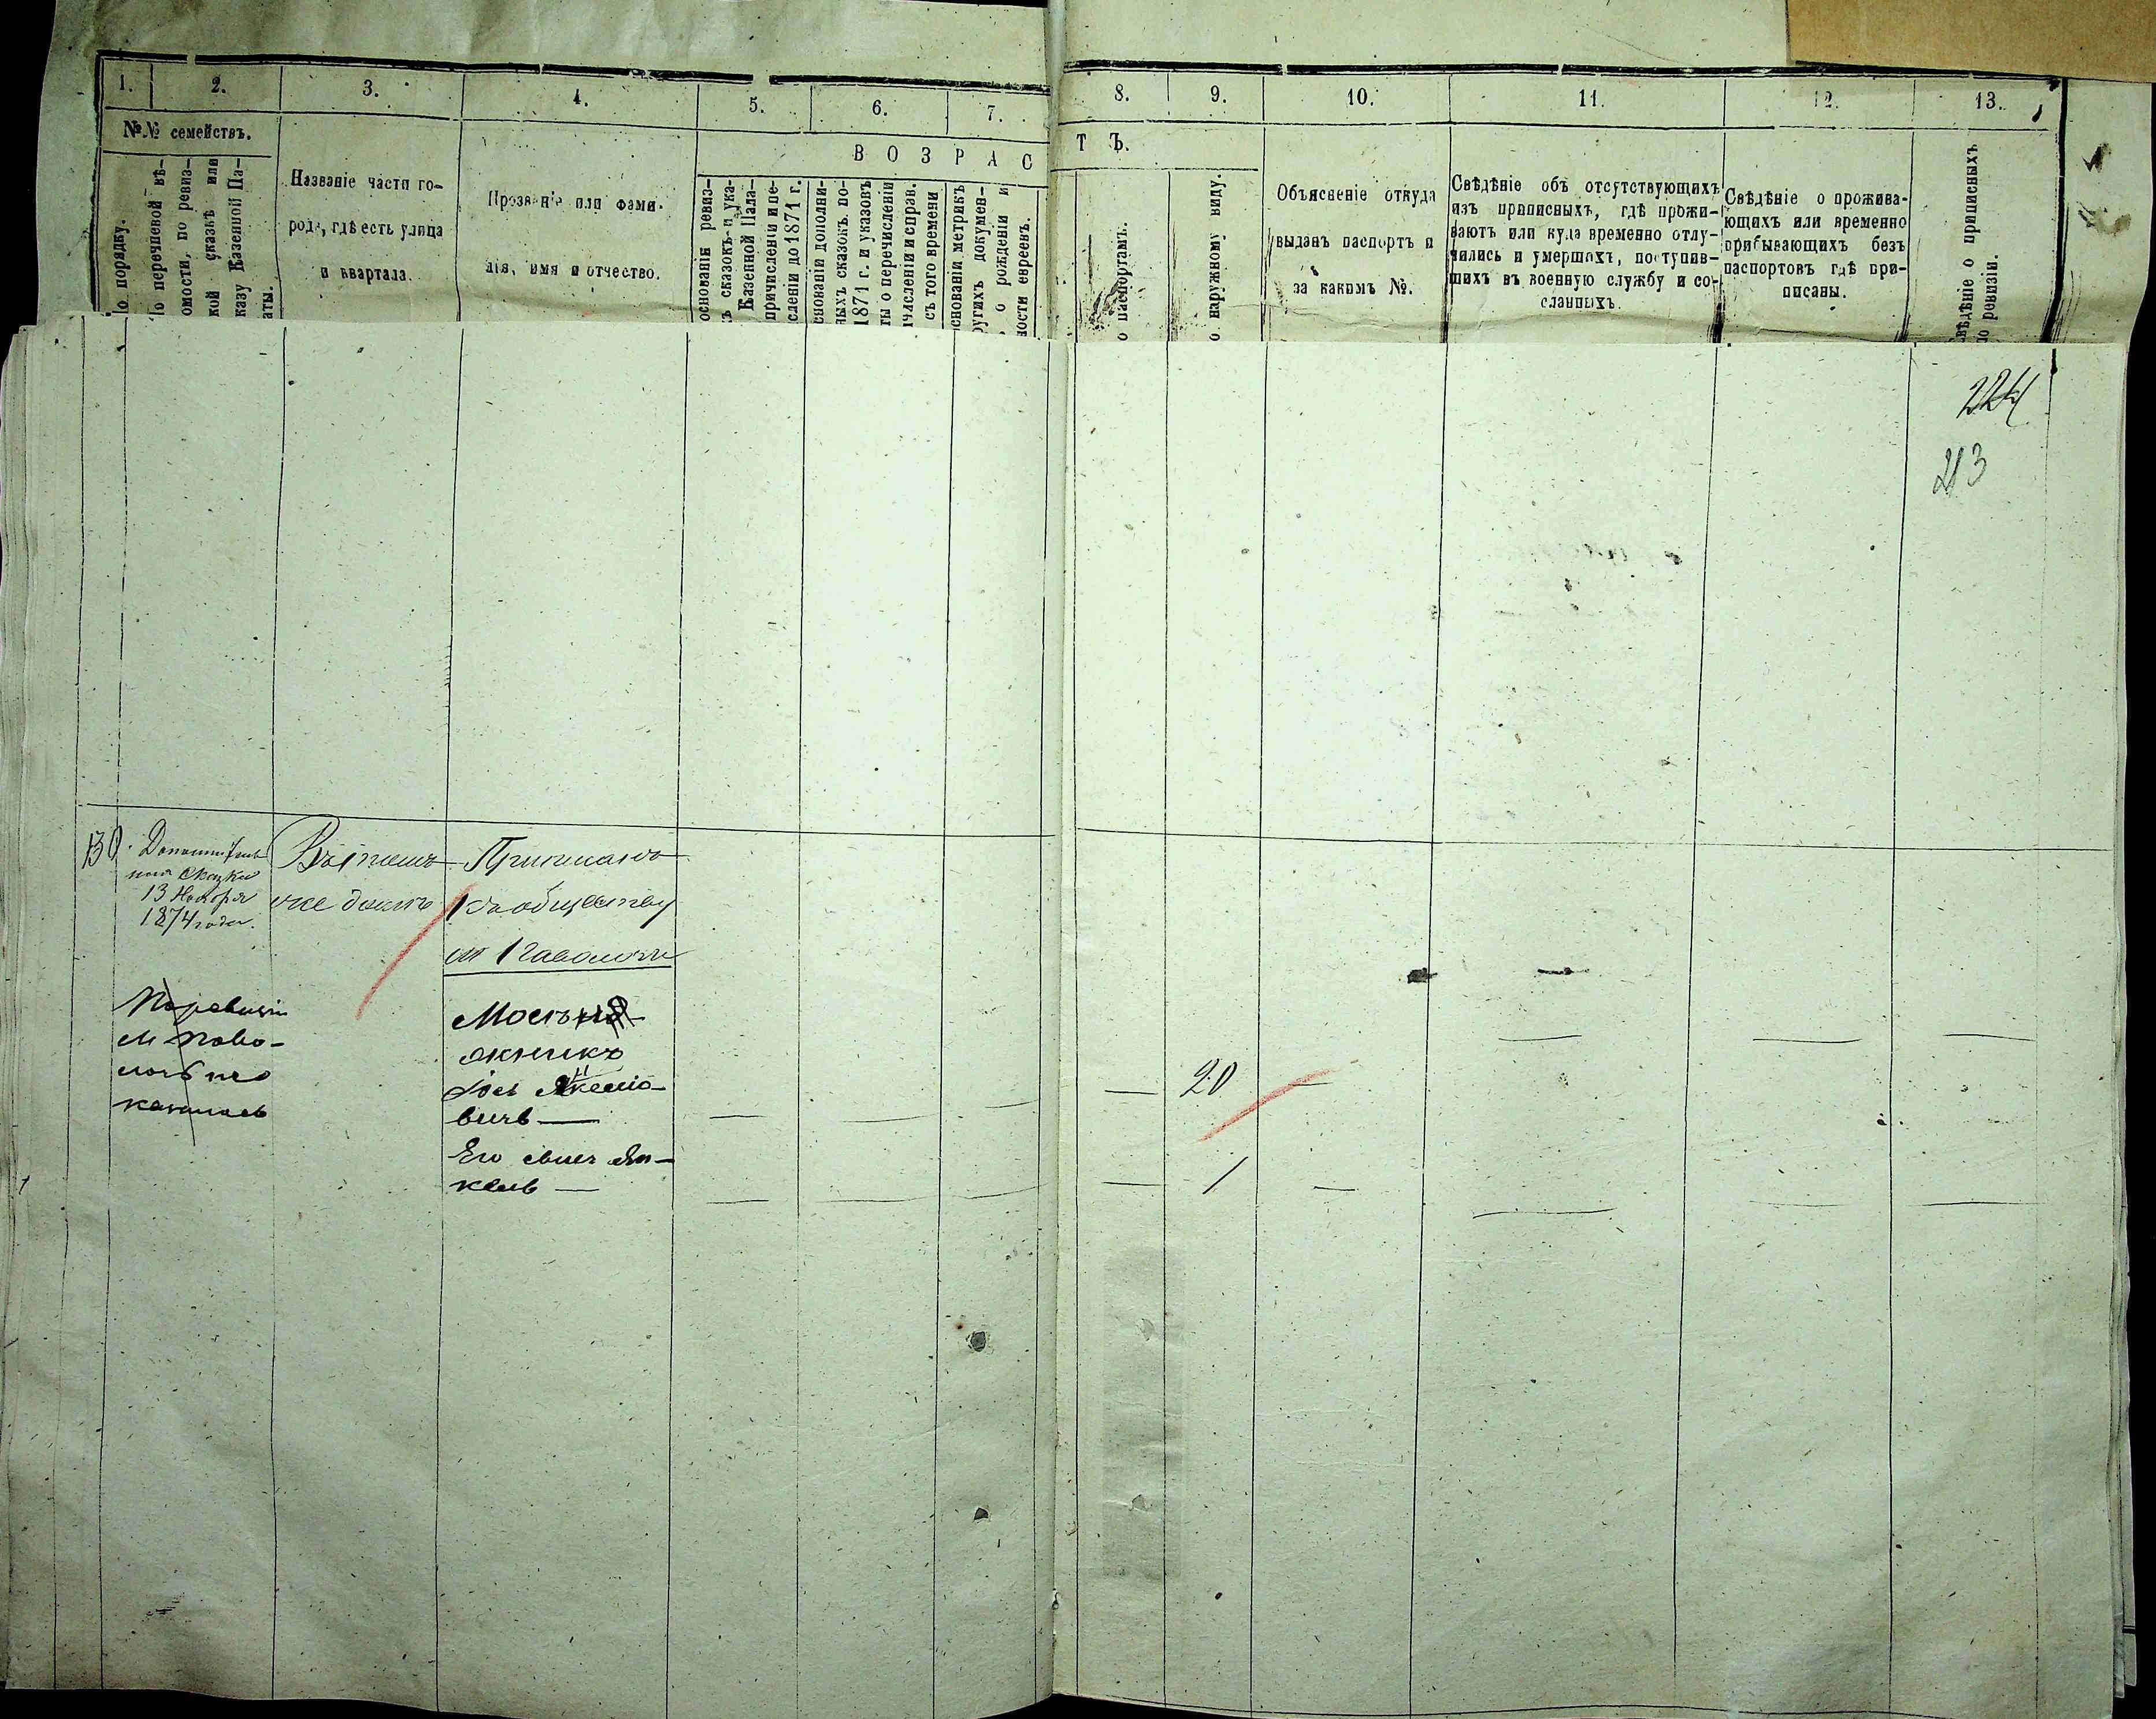 1.
2.
3.
4.
5.
6.
7.
8.
9.
10.
11.
12.
13.
№№ семействъ.
В О З Р А С
Т Ъ.
По порядку.
По перечневой вѣ-
домости, по ревиз-
ской сказкѣ или
указу Казенной Па-
латы.
Названіе части го-
рода, гдѣ есть улица
и квартала.
Прозваніе или фами-
лія, имя и отчество.
основаніи ревиз-
ъ сказокъ и ука-
Казенной Пала-
причисленіи и пе-
сленіи до 1871 г.
снованіи дополни-
ныхъ сказокъ по-
1871 г. и указовъ
ты о перечисленіи
ичисленіи и справ.
съ того времени
снованіи метрикъ
ругихъ докумен-
о рожденіи и
ности евреевъ.
о паспортамъ.
о наружному виду.
Объясненіе откуда
выданъ паспортъ и
за какимъ №.
Свѣдѣніе объ отсутствующихъ
изъ приписныхъ, гдѣ прожи-
ваютъ или куда временно отлу-
чились и умершихъ, поступив-
шихъ въ военную службу и со-
сланныхъ.
Свѣдѣніе о прожива-
ющихъ или временно
прибывающихъ безъ
паспортовъ гдѣ при-
писаны.
Свѣдѣніе о приписныхъ
по ревизіи.
224
213
130.
Дополнитель
ная сказка
13 Ноября
1874 года.
Въ томъ
же домѣ
Приписанъ
къ обществу
По ревизіи
не пока-
Мостъ
Іось
вичъ —
Его сынъ Ян-
кель —
20
1